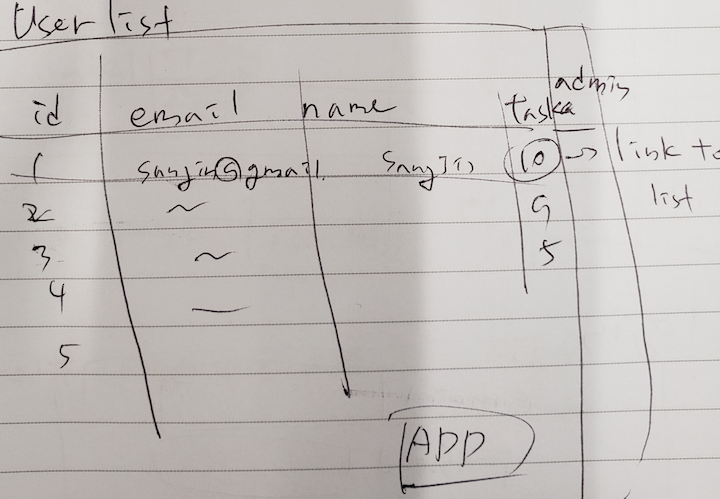 User list
id email name task admin
1 sanjin@gmail. Sanjin 10 → link to
2 ~ 9 list
3 ~ 5
4 —
5
ADD